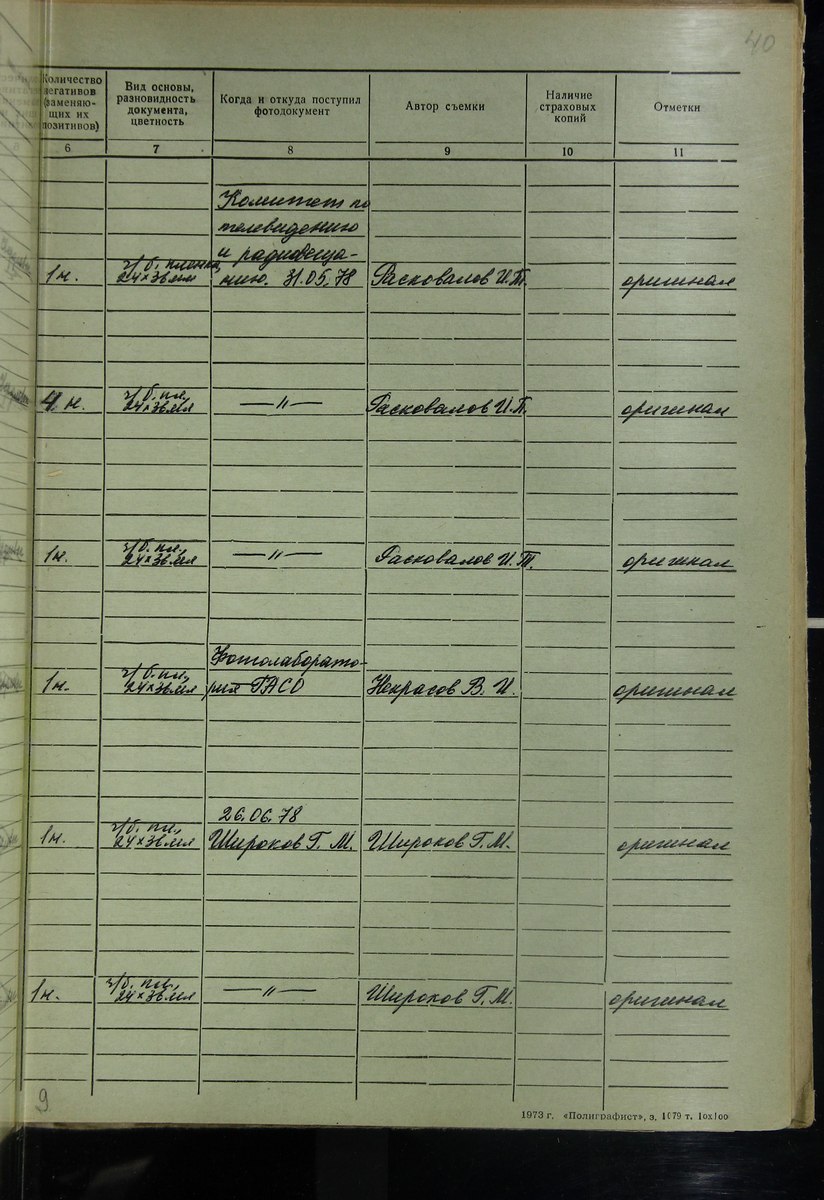 40
Количество негативов (заменяю-щих их позитивов)
Вид основы, разновидность документа, цветность
Когда и откуда поступил фотодокумент
Автор съемки
Наличие страховых копий
Отметки
6 7 8 9 10 11
Комитет по
телевидению
и радиовеща-
1н. ч/б. пленка, 24×36 мм нию. 31.05.78 Расковалов И.Т. оригинал
4 н. ч/б. пл, 24×36 мм —〃— Расковалов И.Т. оригинал
1н. ч/б. пл, 24×36 мм —〃— Расковалов И.Т. оригинал
Фотолаборато-
1н. ч/б. пл, 24×36 мм рия ГАСО Некрасов В. И. оригинал
26.06.78
1н. ч/б. пл, 24×36 мм Широков Г. М. Широков Г. М. оригинал
1н. ч/б. пл, 24×36 мм —〃— Широков Г. М. оригинал
9
1973 г. «Полиграфист», з. 1079 т. 10х100